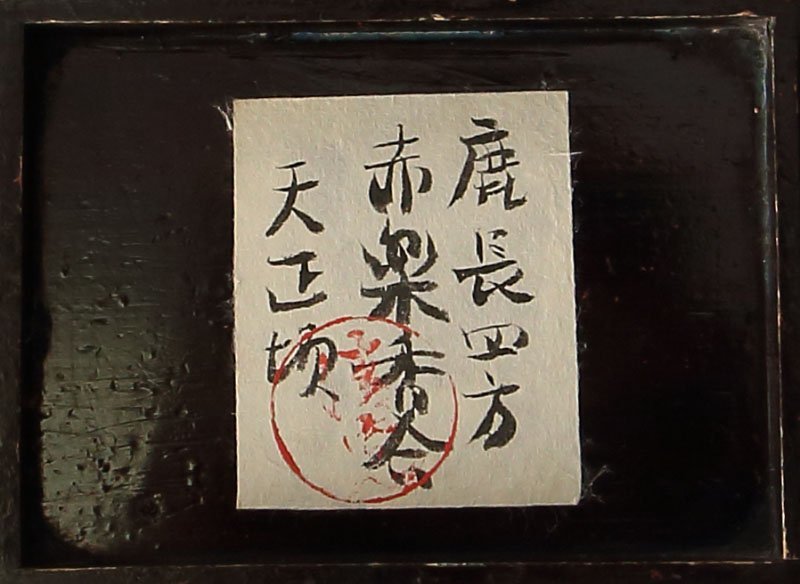 鹿長四方
赤楽香合
天正頃